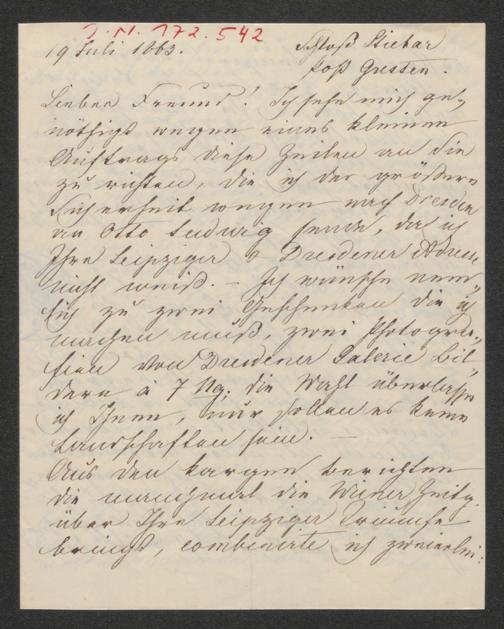 J. N. 172.542
19 Juli 1863. Schloß Stiebar
Post Gresten.
Lieber Freund! Ich sehe mich ge-
nöthigt wegen eines kleinen
Auftrags diese Zeilen an Sie
zu richten, die ich der größern
Sicherheit wegen nach Dresden
an Otto Ludwig sende, da ich
Ihre Leipziger & Dresdener Adresse
nicht weiß. – Ich wünsche näm-
lich zu zwei Geschenken die ich
machen muß, zwei Photogra-
fien von Dresdener Galerie bil-
dern à 7 Ng; die Wahl überlasse
ich Ihnen, nur sollen es keine
Landschaften sein. –
Aus den kargen berichten
die manchmal die Wiener Zeitg.
über Ihre Leipziger Triumfe
bringt, combinirte ich zweierlei: